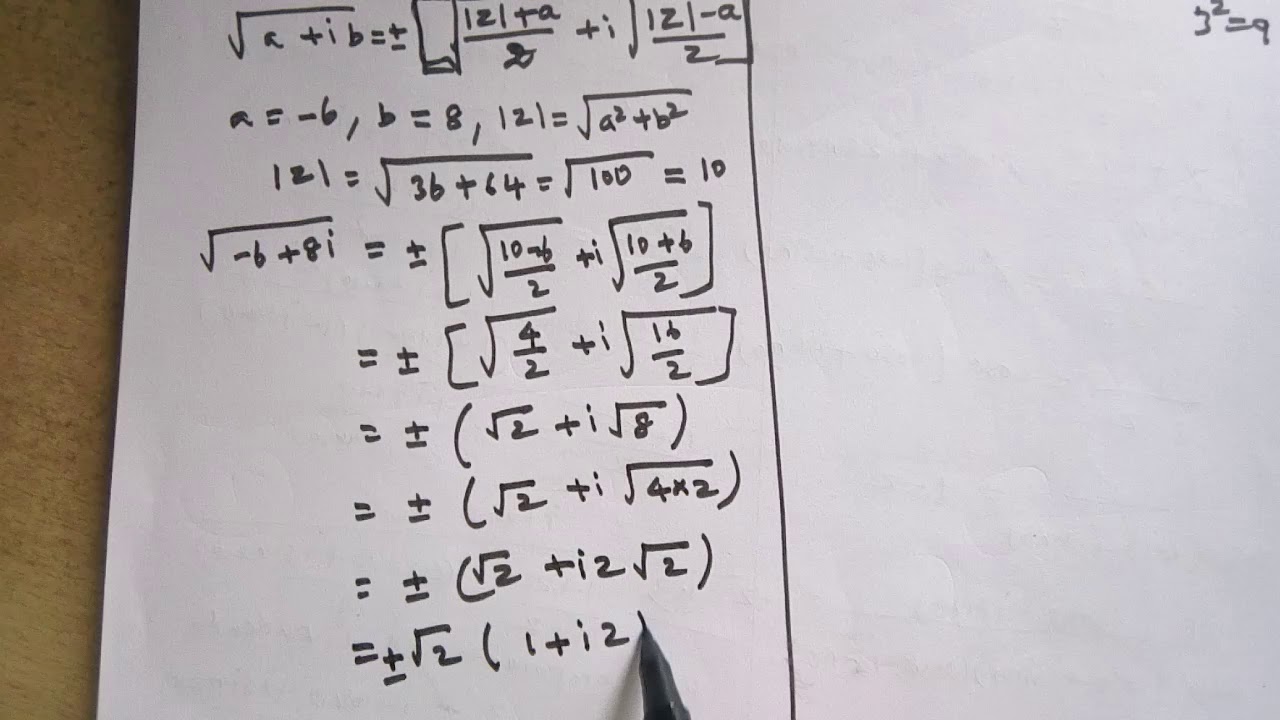 √(a + ib) = ± [√((|z| + a)/2) + i √((|z| - a)/2)]
3² = 9
a = -6, b = 8, |z| = √(a² + b²)
|z| = √(36 + 64) = √100 = 10
√(-6 + 8i) = ± [√((10 - 6)/2) + i √((10 + 6)/2)]
= ± [√(4/2) + i √(16/2)]
= ± (√2 + i √8)
= ± (√2 + i √(4×2))
= ± (√2 + i2√2)
= ± √2 (1 + i2)